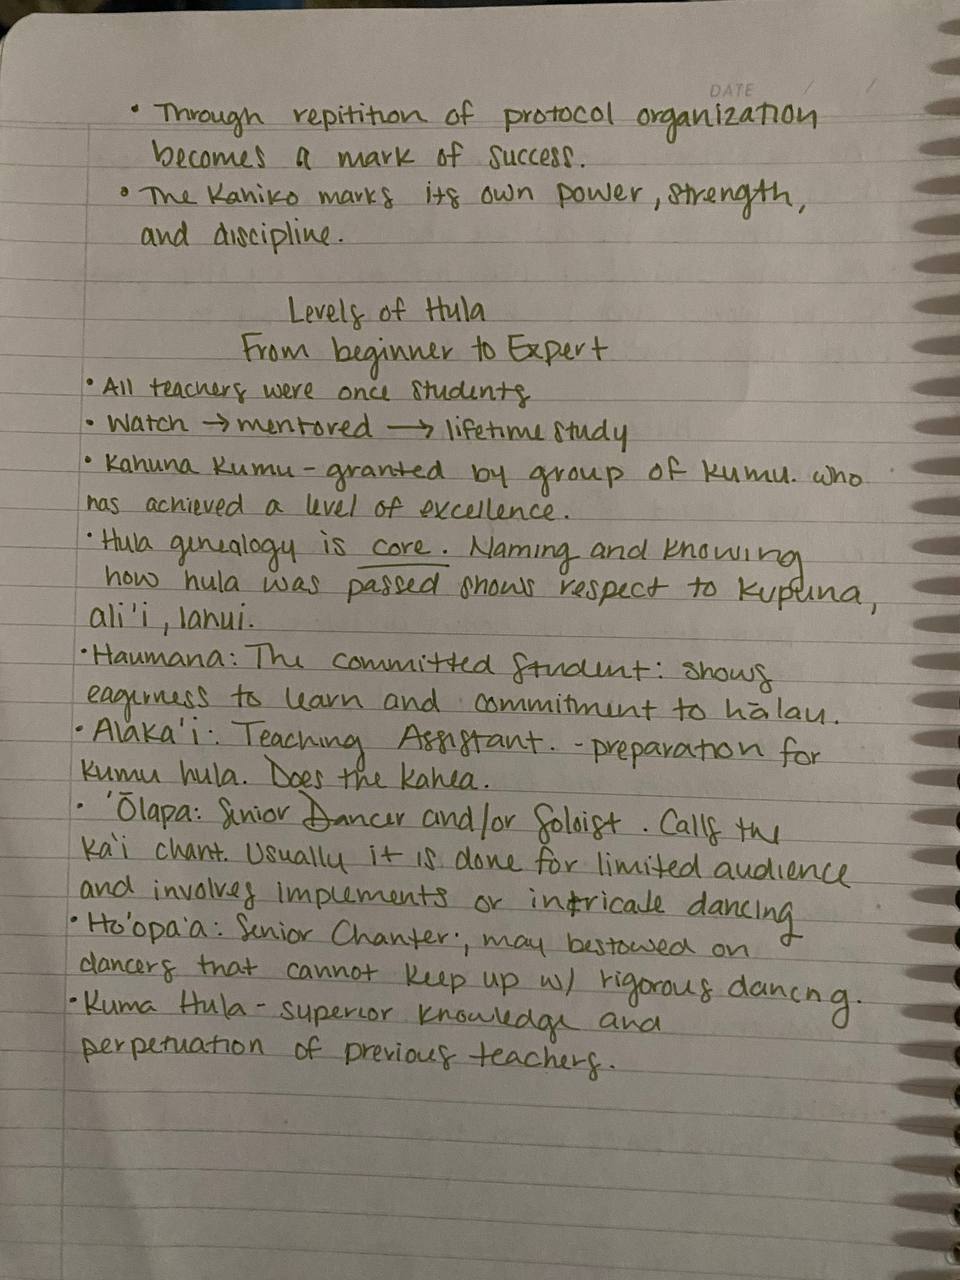 DATE / /
• Through repitition of protocol organization
becomes a mark of success.
• The Kahiko marks its own power, strength,
and discipline.
Levels of Hula
From beginner to Expert
• All teachers were once students
• Watch → mentored → lifetime study
• Kahuna Kumu - granted by group of kumu. who
has achieved a level of excellence.
• Hula genealogy is core. Naming and knowing
how hula was passed shows respect to Kupuna,
ali'i, lahui.
• Haumana: The committed student: shows
eagerness to learn and commitment to hālau.
• Alaka'i: Teaching Assistant. - preparation for
Kumu hula. Does the kahea.
• 'Ōlapa: Senior Dancer and/or Soloist. Calls the
Ka'i chant. Usually it is done for limited audience
and involves implements or intricate dancing
• Ho'opa'a: Senior Chanter; may bestowed on
dancers that cannot keep up w/ rigorous dancng.
• Kuma Hula - superior knowledge and
perpetuation of previous teachers.